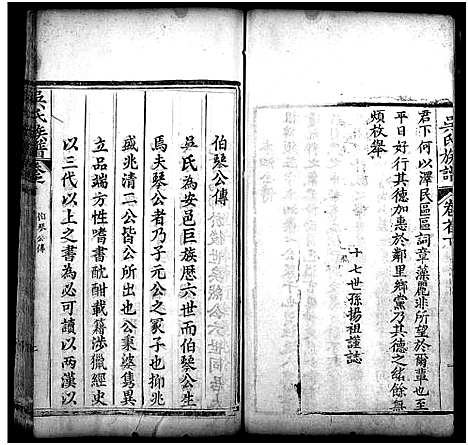 吳氏族譜
卷首下
君下何以澤民區區詞章藻麗非所望於爾輩也至
平日好行其德加惠於鄰里鄉黨乃其德之緒餘無
煩枚舉
十七世孫揚祖謹誌
伯琴公傳
吳氏為安邑巨族歷六世而伯琴公生
焉夫琴公者乃子元公之冢子也抑兆
盛兆清二公皆公所出也公秉姿雋異
立品端方性嗜書酖酣載籍涉獵經史
以三代以上之書為必可讀以兩漢以
吳氏族譜
伯琴公傳